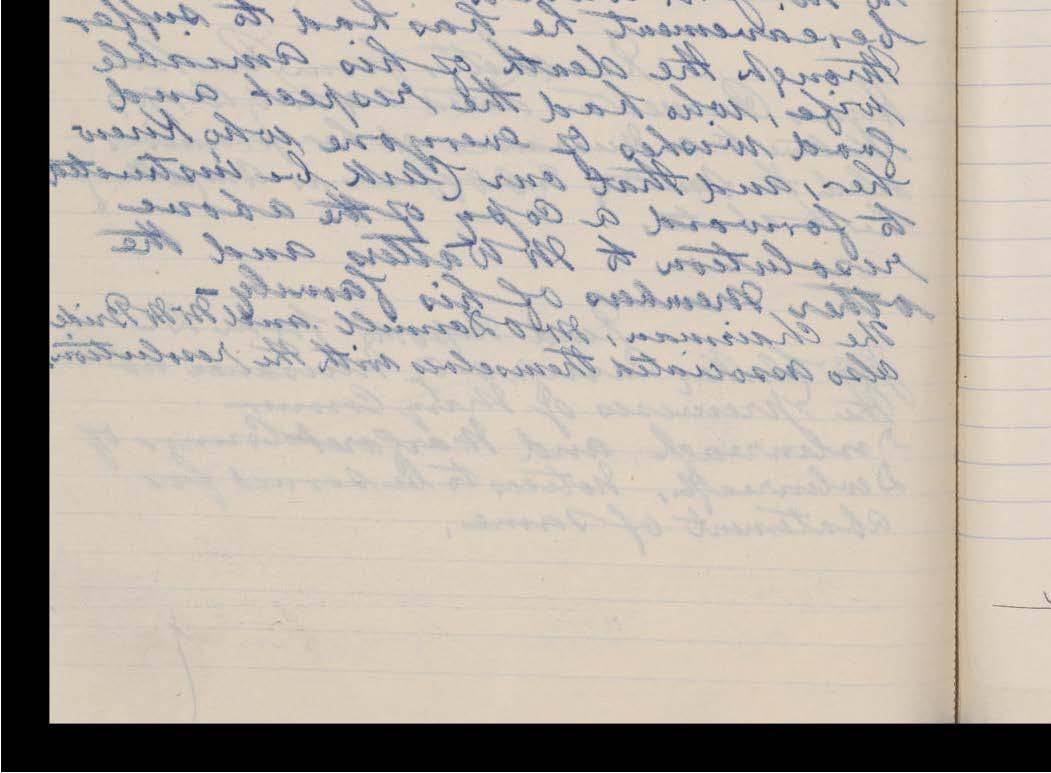 bereavement he has had to suffer
through the death of his amiable
wife, who had the respect and
good wishes of everyone who knew
her, and that our Clerk be instructed
to forward a copy of the above
resolution to Mr Watters and the
other members of his family –
The Chairman, Mr Donnell and Mr McBride
also associated themselves with the resolution.
The premises of Mary
and
Notices to be served for
abatement of same.